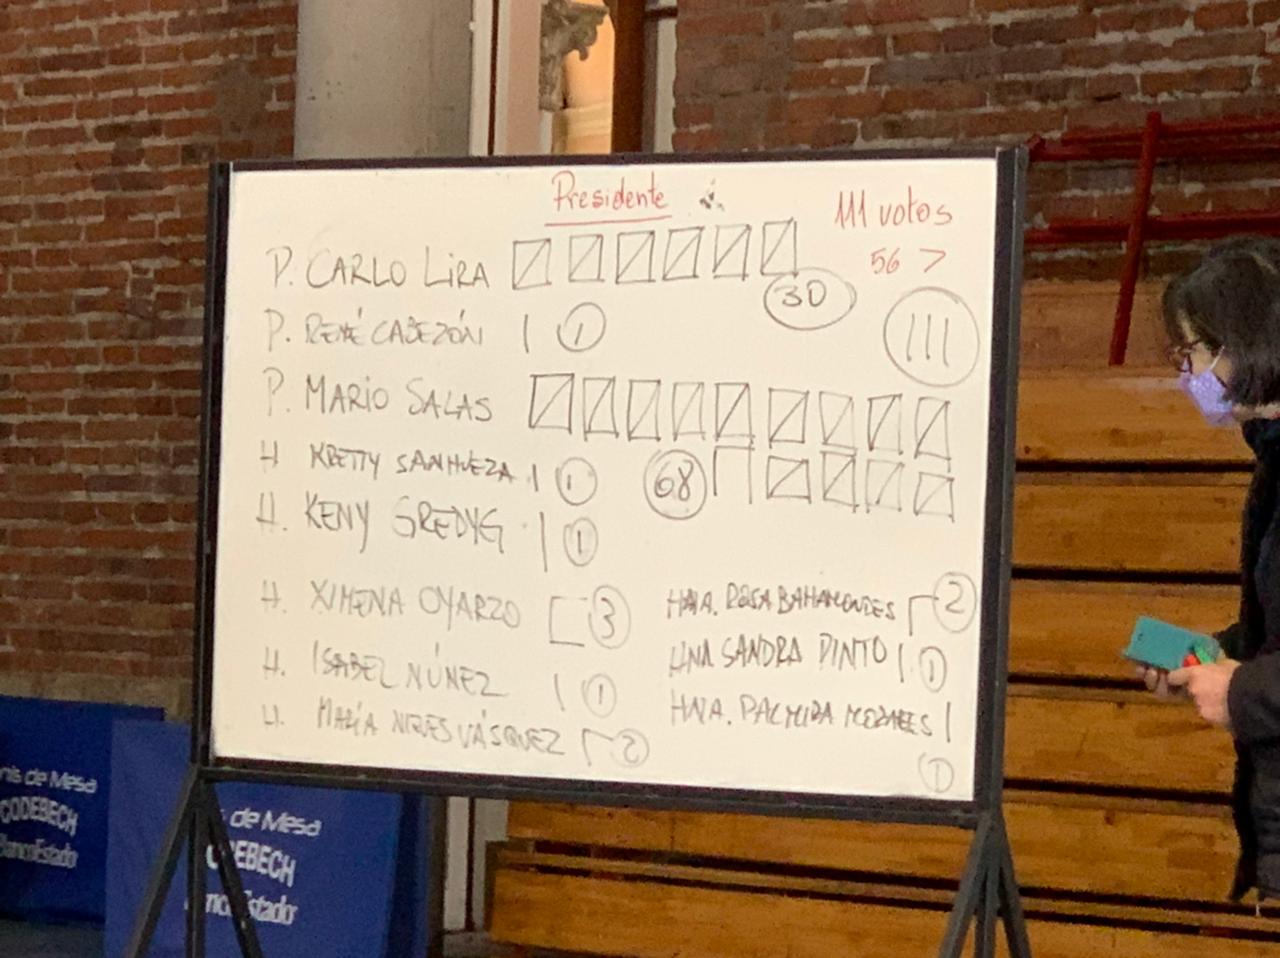 Presidente
111 votos
56 >
P. CARLO LIRA 30
111
P. RENÉ CABEZÓN | 1
P. MARIO SALAS
H KRETTY SANHUEZA | 1 68
H. KENY GREDYG | 1
H. XIMENA OYARZO 3
H. ISABEL NÚÑEZ | 1
H. MARÍA NIEVES VÁSQUEZ 2
HNA. ROSA BAHAMONDES 2
HNA SANDRA PINTO | 1
HNA. PALMIRA MORALES |
1
nis de Mesa
CODEBECH
BancoEstado
de Mesa
CODEBECH
BancoEstado